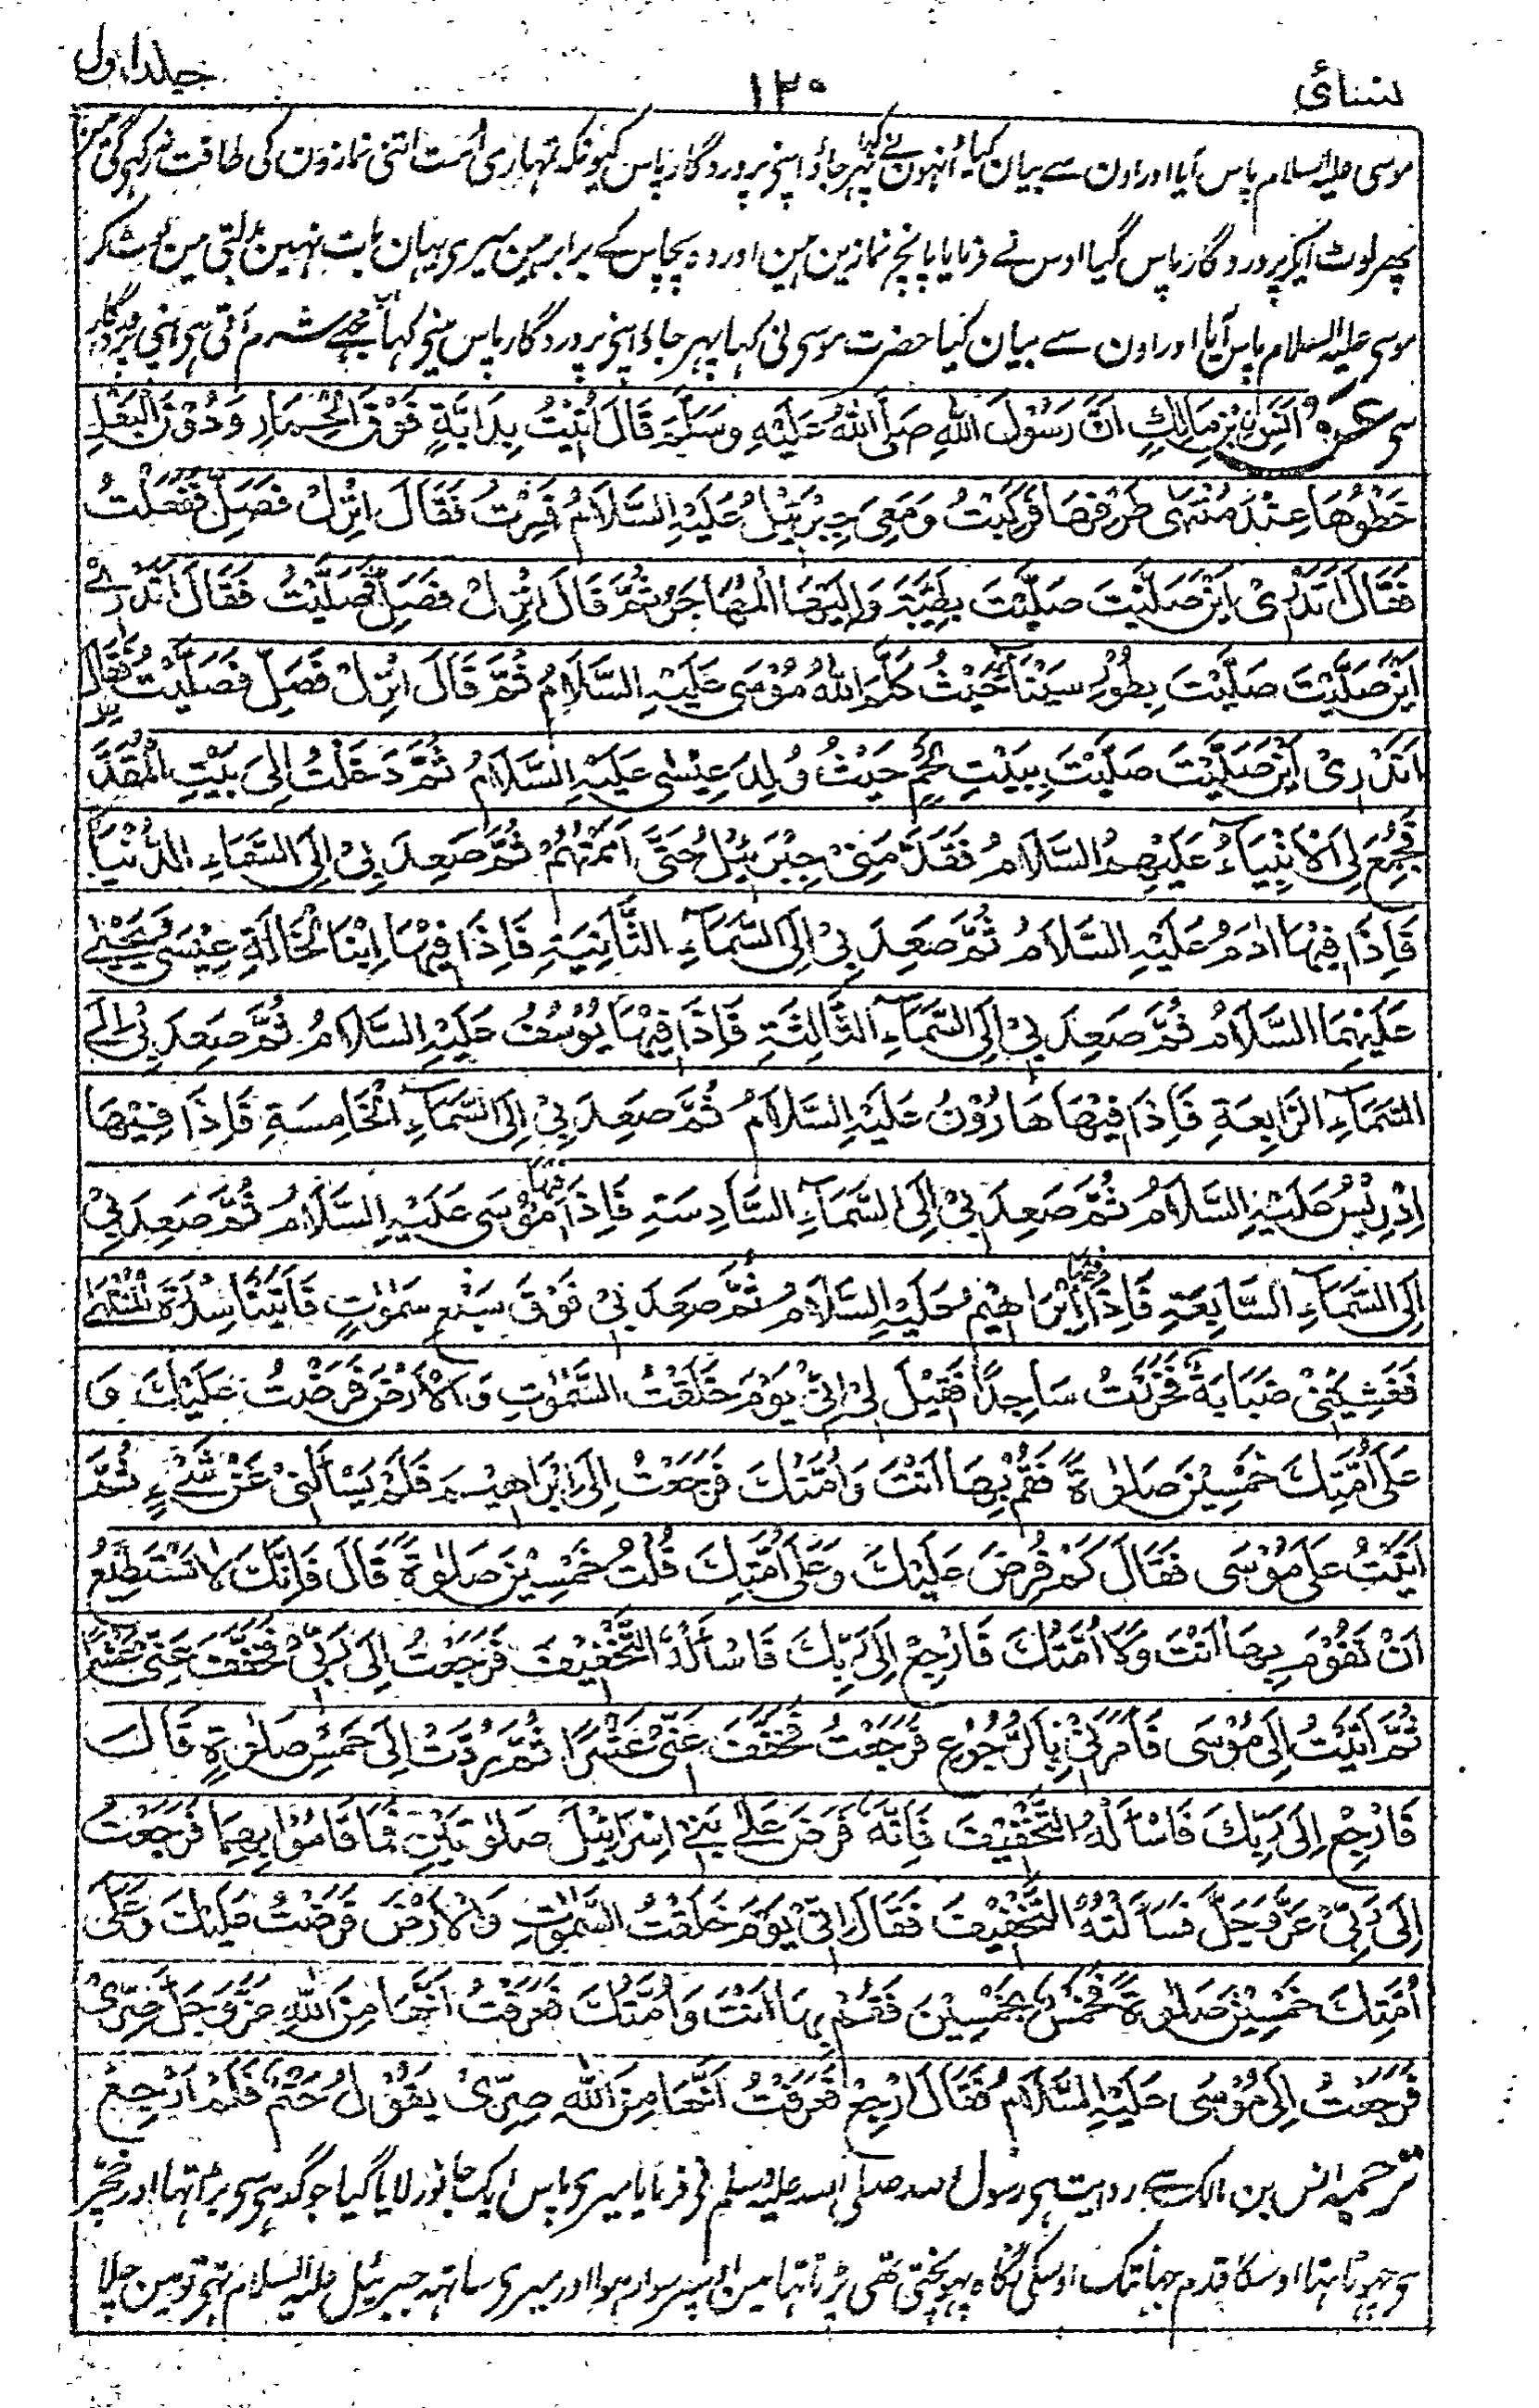 نسائی ۱۲۰ جلد اول
موسی علیہ السلام پاس آیا اور اون سے بیان کیا اُنہوں نے کہا پہر جاؤ اپنے پروردگار پاس کیونکہ تمہاری اُمت اتنی نمازون کی طاقت نہ رکہے گی مین
پھر لوٹ آیکر پروردگار پاس گیا اوس نے فرمایا پانچ نمازین ہین اور وہ پچاس کے برابر ہین میری یہان بات نہین بدلتی مین لوٹ کر
موسی علیہ السلام پاس آیا اور اون سے بیان کیا حضرت موسی نی کہا پہر جاؤ اپنے پروردگار پاس مینی کہا اب مجھے شرم آتی ہی اپنی پروردگار
سی عَنْ اَنَسِ بْنِ مَالِكٍ اَنَّ رَسُوْلَ اللهِ صَلَّى اللهُ عَلَيْهِ وَسَلَّمَ قَالَ اُتِيْتُ بِدَابَّةٍ فَوْقَ الْحِمَارِ وَدُوْنَ الْبَغْلِ
خَطْوُهَا عِنْدَ مُنْتَهٰى طَرْفِهَا فَرَكِبْتُ وَمَعِىَ جِبْرَئِيْلُ عَلَيْهِ السَّلَامُ فَسِرْتُ فَقَالَ انْزِلْ فَصَلِّ فَفَعَلْتُ
فَقَالَ اَتَدْرِىْ اَيْنَ صَلَّيْتَ صَلَّيْتَ بِطَيْبَةَ وَاِلَيْهَا الْمُهَاجَرُ ثُمَّ قَالَ انْزِلْ فَصَلِّ فَصَلَّيْتُ فَقَالَ اَتَدْرِىْ
اَيْنَ صَلَّيْتَ صَلَّيْتَ بِطُوْرِ سَيْنَآءَ حَيْثُ كَلَّمَ اللهُ مُوْسٰى عَلَيْهِ السَّلَامُ ثُمَّ قَالَ انْزِلْ فَصَلِّ فَصَلَّيْتُ فَقَالَ
اَتَدْرِىْ اَيْنَ صَلَّيْتَ صَلَّيْتَ بِبَيْتِ لَحْمٍ حَيْثُ وُلِدَ عِيْسٰى عَلَيْهِ السَّلَامُ ثُمَّ دَخَلْتُ اِلٰى بَيْتِ الْمُقَدَّسِ
فَجُمِعَ لِىَ الْاَنْبِيَآءُ عَلَيْهِمُ السَّلَامُ فَقَدَّمَنِىْ جِبْرَئِيْلُ حَتّٰى اَمَمْتُهُمْ ثُمَّ صَعِدَ بِىْ اِلَى السَّمَاءِ الدُّنْيَا
فَاِذَا فِيْهَا اٰدَمُ عَلَيْهِ السَّلَامُ ثُمَّ صَعِدَ بِىْ اِلَى السَّمَآءِ الثَّانِيَةِ فَاِذَا فِيْهَا ابْنَا الْخَالَةِ عِيْسٰى وَيَحْيٰى
عَلَيْهِمَا السَّلَامُ ثُمَّ صَعِدَ بِىْ اِلَى السَّمَآءِ الثَّالِثَةِ فَاِذَا فِيْهَا يُوْسُفُ عَلَيْهِ السَّلَامُ ثُمَّ صَعِدَ بِىْ اِلَى
السَّمَآءِ الرَّابِعَةِ فَاِذَا فِيْهَا هَارُوْنُ عَلَيْهِ السَّلَامُ ثُمَّ صَعِدَ بِىْ اِلَى السَّمَآءِ الْخَامِسَةِ فَاِذَا فِيْهَا
اِدْرِيْسُ عَلَيْهِ السَّلَامُ ثُمَّ صَعِدَ بِىْ اِلَى السَّمَآءِ السَّادِسَةِ فَاِذَا فِيْهَا مُوْسٰى عَلَيْهِ السَّلَامُ ثُمَّ صَعِدَ بِىْ
اِلَى السَّمَآءِ السَّابِعَةِ فَاِذَا فِيْهَا اِبْرَاهِيْمُ عَلَيْهِ السَّلَامُ ثُمَّ صَعِدَ بِىْ فَوْقَ سَبْعِ سَمٰوٰتٍ فَاَتَيْنَا سِدْرَةَ الْمُنْتَهٰى
فَغَشِيَتْنِىْ ضَبَابَةٌ فَخَرَرْتُ سَاجِدًا فَقِيْلَ لِىْ اِنِّىْ يَوْمَ خَلَقْتُ السَّمٰوٰتِ وَالْاَرْضَ فَرَضْتُ عَلَيْكَ وَ
عَلٰى اُمَّتِكَ خَمْسِيْنَ صَلٰوةً فَقُمْ بِهَا اَنْتَ وَاُمَّتُكَ فَرَجَعْتُ اِلٰى اِبْرَاهِيْمَ فَلَمْ يَسْاَلْنِىْ عَنْ شَىْءٍ ثُمَّ
اَتَيْتُ عَلٰى مُوْسٰى فَقَالَ كَمْ فُرِضَ عَلَيْكَ وَعَلٰى اُمَّتِكَ قُلْتُ خَمْسِيْنَ صَلٰوةً قَالَ فَاِنَّكَ لَا تَسْتَطِيْعُ
اَنْ تَقُوْمَ بِهَا اَنْتَ وَلَا اُمَّتُكَ فَارْجِعْ اِلٰى رَبِّكَ فَاسْاَلْهُ التَّخْفِيْفَ فَرَجَعْتُ اِلٰى رَبِّىْ فَخَفَّفَ عَنِّىْ عَشْرًا
ثُمَّ اَتَيْتُ اِلٰى مُوْسٰى فَاَمَرَنِىْ بِالرُّجُوْعِ فَرَجَعْتُ فَخَفَّفَ عَنِّىْ عَشْرًا ثُمَّ رُدَّتْ اِلٰى خَمْسِ صَلٰوةٍ قَالَ
فَارْجِعْ اِلٰى رَبِّكَ فَاسْاَلْهُ التَّخْفِيْفَ فَاِنَّهٗ فَرَضَ عَلٰى بَنِىْ اِسْرَائِيْلَ صَلٰوتَيْنِ فَمَا قَامُوْا بِهِمَا فَرَجَعْتُ
اِلٰى رَبِّىْ عَزَّ وَجَلَّ فَسَاَلْتُهُ التَّخْفِيْفَ فَقَالَ اِنِّىْ يَوْمَ خَلَقْتُ السَّمٰوٰتِ وَالْاَرْضَ فَرَضْتُ عَلَيْكَ وَعَلٰى
اُمَّتِكَ خَمْسِيْنَ صَلٰوةً فَخَمْسٌ بِخَمْسِيْنَ فَقُمْ بِهَا اَنْتَ وَاُمَّتُكَ فَعَرَفْتُ اَنَّهَا مِنَ اللهِ عَزَّ وَجَلَّ صِرّٰى
فَرَجَعْتُ اِلٰى مُوْسٰى عَلَيْهِ السَّلَامُ فَقَالَ ارْجِعْ فَعَرَفْتُ اَنَّهَا مِنَ اللهِ صِرّٰى يَقُوْلُ حَتْمٌ فَلَمْ اَرْجِعْ
ترجمہ انس بن مالک سے روایت ہی رسول اللہ صلی اللہ علیہ وسلم نی فرمایا میری پاس ایک جانور لایا گیا جو گدہی سی بڑا تہا اور خچر
سی چہوٹا تہا اوسکا قدم جہانتک اوسکی نگاہ پہونچتی تھی پڑتا تہا مین اوسپر سوار ہوا اور میری ساتہہ جبرئیل علیہ السلام تہی تو مین چلا